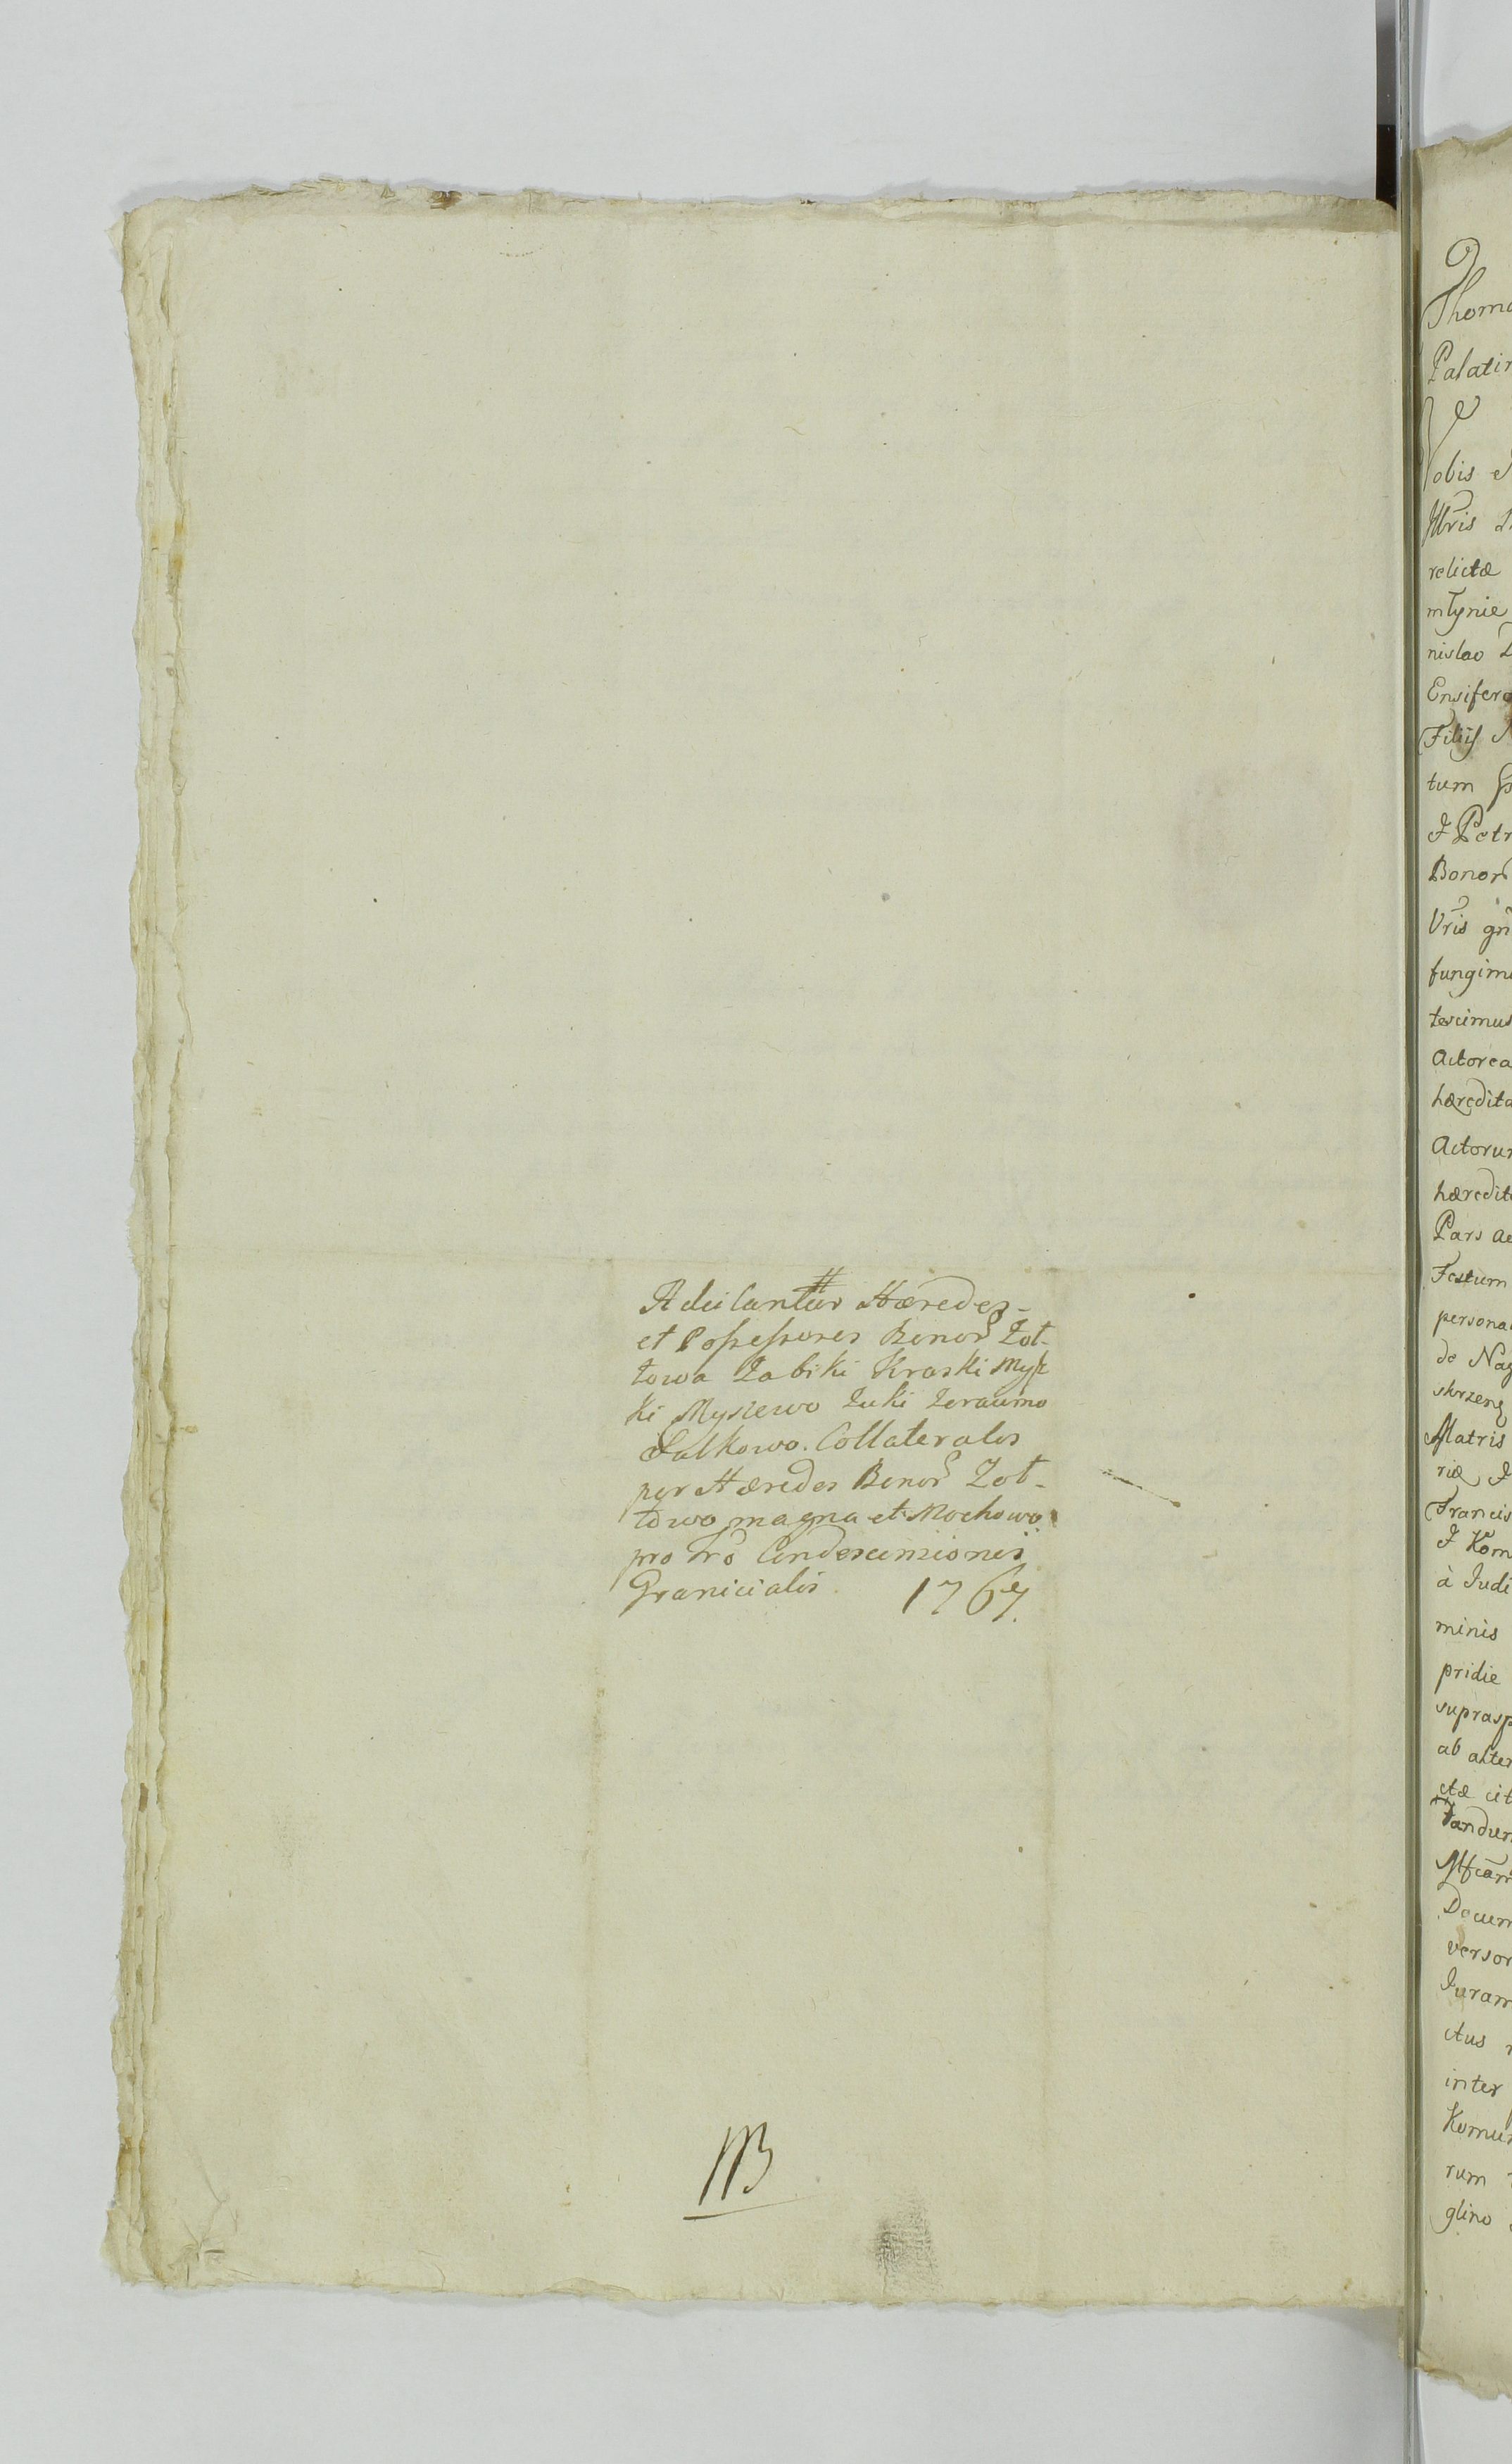 Adcitantur Hæredes
et Possessores Bonor Żot-
towa Żabiki Kraski Mysz
ki Myslewo Żuki
Falkowo. Collaterales
per Hæredes Bonor Żot-
towo magna et Mochowo
pro tro Condescensionis
Granicialis. 1767.
Thoma
Palatin
Vobis
relictæ
młynie
nislao
Ensifero
Filiis
tum
Petr
Bonor
Vris gn
fungimu
tescimus
Actorea
hæredita
Actorum
hæredita
Pars ac
Festum
persona
de Nag
skrzeng
Matris
riæ
Francis
Kom
à Judi
minis
pridie
suprasp
ab alter
ctæ cit
Docum
versor
Juram
ctus
inter
Komun
rum
glino